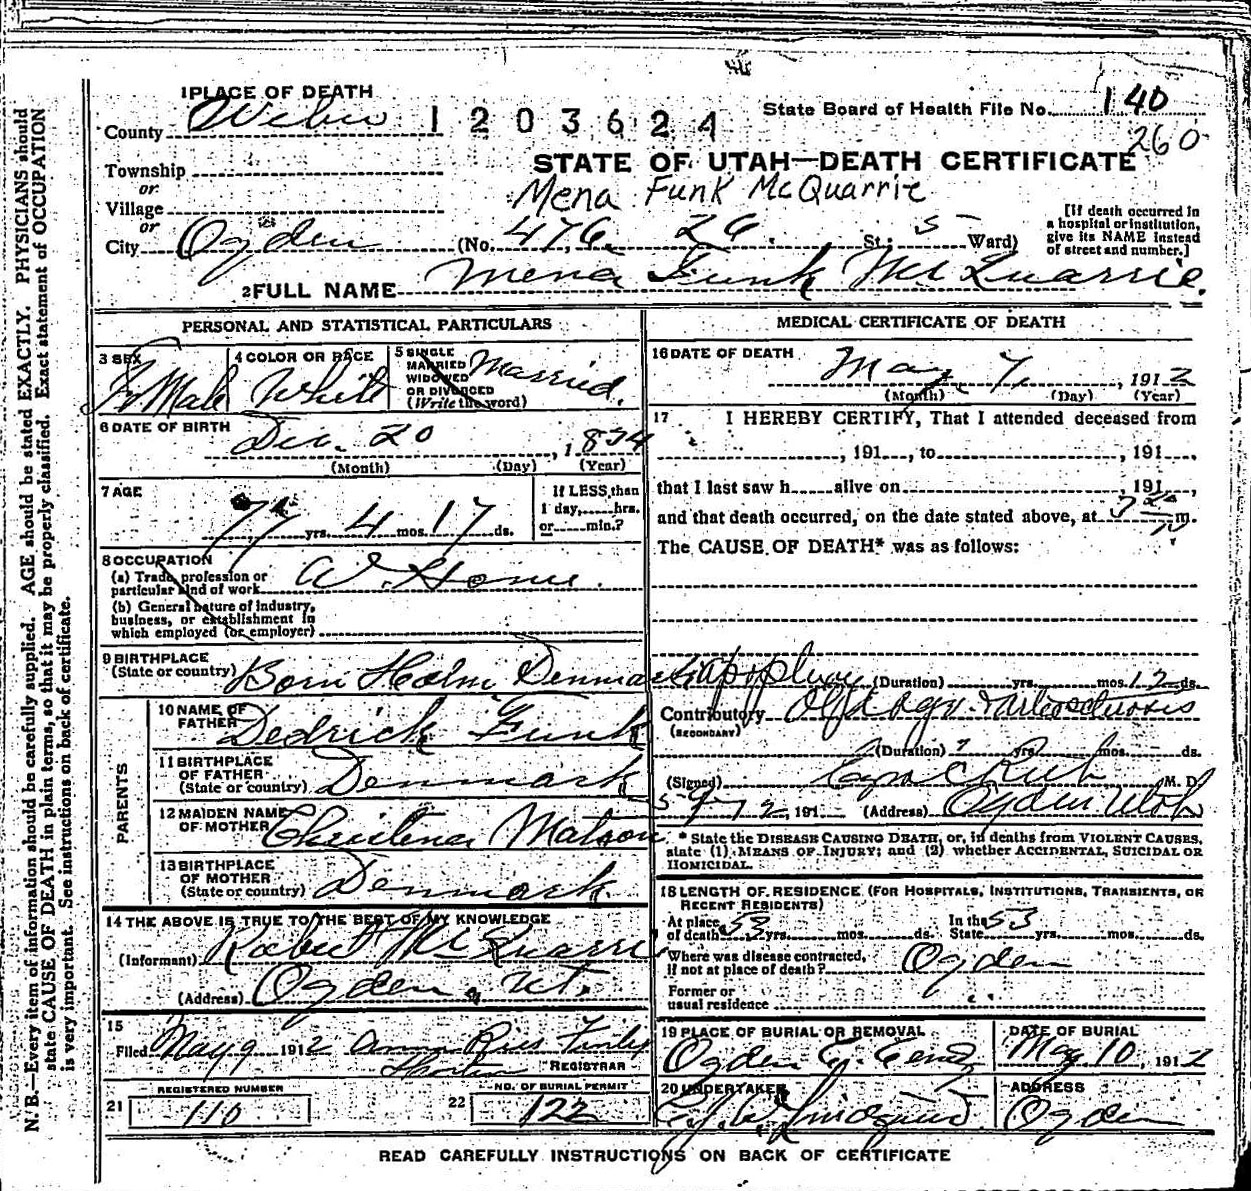 1 PLACE OF DEATH
County Weber 1203624
State Board of Health File No. 140
260
Township
or
Village
or
City Ogden (No. 476. 26. St; 5 Ward)
STATE OF UTAH—DEATH CERTIFICATE
Mena Funk McQuarrie
[If death occurred in a hospital or institution, give its NAME instead of street and number.]
2 FULL NAME Mena Funk McQuarrie.
PERSONAL AND STATISTICAL PARTICULARS
3 SEX
FeMale
4 COLOR OR RACE
White
5 SINGLE
MARRIED
WIDOWED
OR DIVORCED
(Write the word)
Married.
6 DATE OF BIRTH
Dec. 20, 1834
(Month) (Day) (Year)
7 AGE
77 yrs. 4 mos. 17 ds.
If LESS than
1 day, hrs.
or min.?
8 OCCUPATION
(a) Trade, profession or
particular kind of work At Home.
(b) General nature of industry,
business, or establishment in
which employed (or employer)
9 BIRTHPLACE
(State or country) Born Holm Denmark
PARENTS
10 NAME OF
FATHER Dedrick Funk
11 BIRTHPLACE
OF FATHER
(State or country) Denmark
12 MAIDEN NAME
OF MOTHER Christena Matson
13 BIRTHPLACE
OF MOTHER
(State or country) Denmark.
14 THE ABOVE IS TRUE TO THE BEST OF MY KNOWLEDGE
(Informant) Robert McQuarrie
(Address) Ogden, Ut.
15
Filed May 9 1912 Anna Ries Finley
REGISTRAR
REGISTERED NUMBER
21 110
NO. OF BURIAL PERMIT
22 122
MEDICAL CERTIFICATE OF DEATH
16 DATE OF DEATH
May 7, 1912
(Month) (Day) (Year)
17 I HEREBY CERTIFY, That I attended deceased from
, 191 , to , 191 ,
that I last saw h alive on 191 ,
and that death occurred, on the date stated above, at 3 m.
The CAUSE OF DEATH* was as follows:
Apoplexy (Duration) yrs. mos. 12 ds.
Contributory Old age & arteriosclerosis
(SECONDARY)
(Duration) ? yrs. mos. ds.
(Signed) Ezra C Rich M. D.
5 9 12, 191 (Address) Ogden Utah
* State the DISEASE CAUSING DEATH, or, in deaths from VIOLENT CAUSES,
state (1) MEANS OF INJURY; and (2) whether ACCIDENTAL, SUICIDAL OR
HOMICIDAL.
18 LENGTH OF RESIDENCE (FOR HOSPITALS, INSTITUTIONS, TRANSIENTS, OR
RECENT RESIDENTS)
At place
of death 53 yrs. mos. ds.
In the
State 53 yrs. mos. ds.
Where was disease contracted,
if not at place of death? Ogden
Former or
usual residence
19 PLACE OF BURIAL OR REMOVAL
Ogden Cy. Cemy
DATE OF BURIAL
May 10, 1912
20 UNDERTAKER
ADDRESS
Ogden
READ CAREFULLY INSTRUCTIONS ON BACK OF CERTIFICATE
N. B.—Every item of information should be carefully supplied. AGE should be stated EXACTLY. PHYSICIANS should
state CAUSE OF DEATH in plain terms, so that it may be properly classified. Exact statement of OCCUPATION
is very important. See instructions on back of certificate.